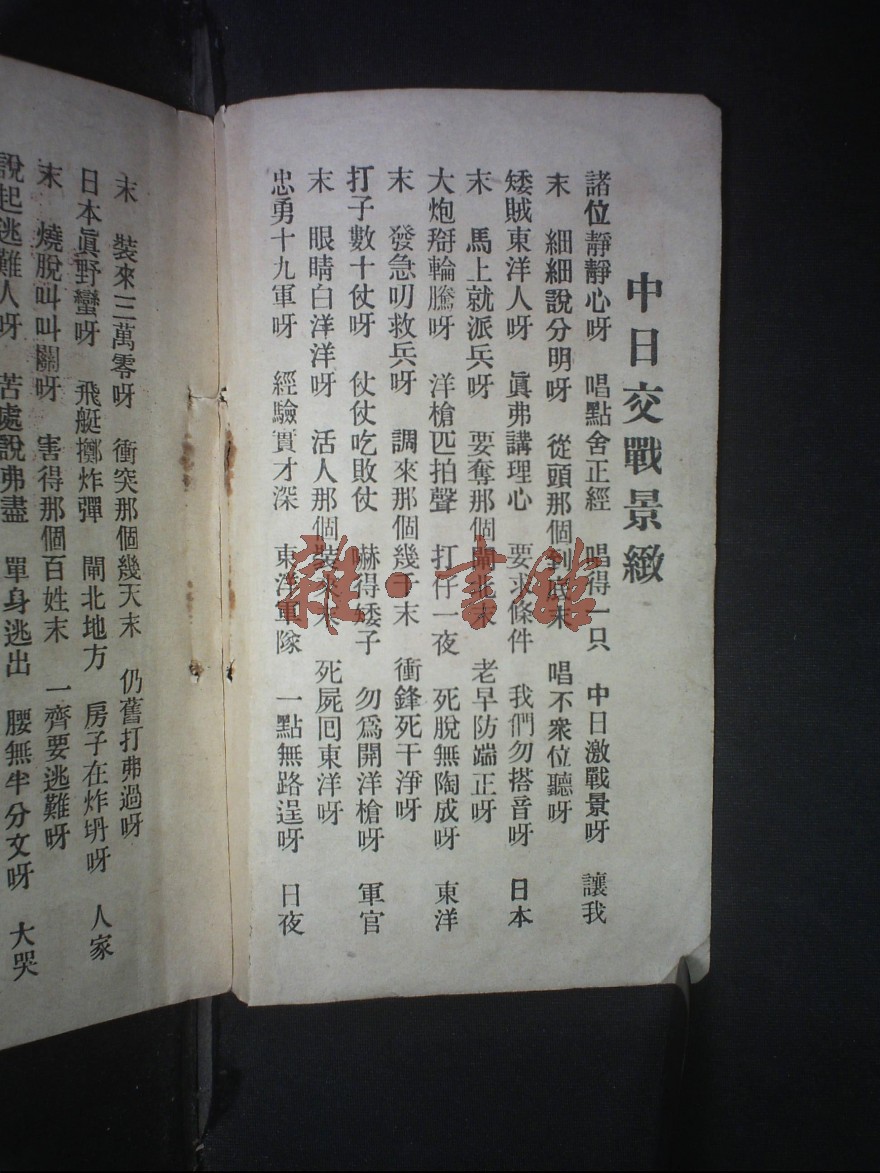 中日交戰景緻
諸位靜靜心呀　唱點舍正經　唱得一只　中日激戰景呀　讓我
末　細細說分明呀　從頭那個到底末　唱不衆位聽呀
矮賊東洋人呀　眞弗講理心　要求條件　我們勿搭音呀　日本
末　馬上就派兵呀　要奪那個閘北末　老早防端正呀
大炮搿輪騰呀　洋槍匹拍聲　打仔一夜　死脫無陶成呀　東洋
末　發急叨救兵呀　調來那個幾千末　衝鋒死干淨呀
打子數十仗呀　仗仗吃敗仗　嚇得矮子　勿爲開洋槍呀　軍官
末　眼睛白洋洋呀　活人那個裝來末　死屍囘東洋呀
忠勇十九軍呀　經驗實才深　東洋軍隊　一點無路逞呀　日夜
末　裝來三萬零呀　衝突那個幾天末　仍舊打弗過呀
日本眞野蠻呀　飛艇擲炸彈　閘北地方　房子在炸坍呀　人家
末　燒脫叫叫關呀　害得那個百姓末　一齊要逃難呀
說起逃難人呀　苦處說弗盡　單身逃出　腰無半分文呀　大哭
雜·書館